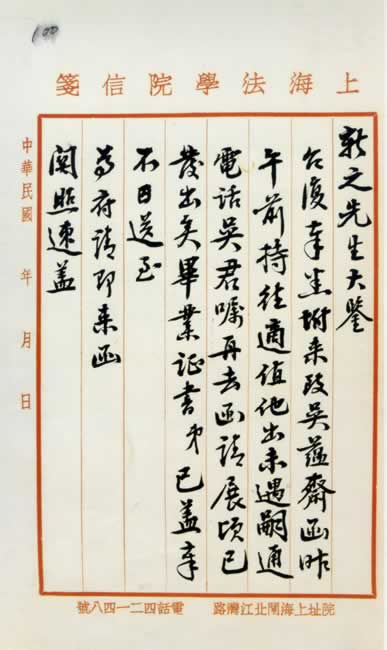 100
上海法學院信箋
新之先生大鑒
台復奉悉附来致吳蘊齋函昨
午前持往適值他出未遇嗣通
電话吳君囑再去函請展頃已
發出矣畢業证書弟已盖章
不日送至
府請即来函
関照速盖
中華民國 年 月 日
院址上海閘北江灣路 電話四二一四八號